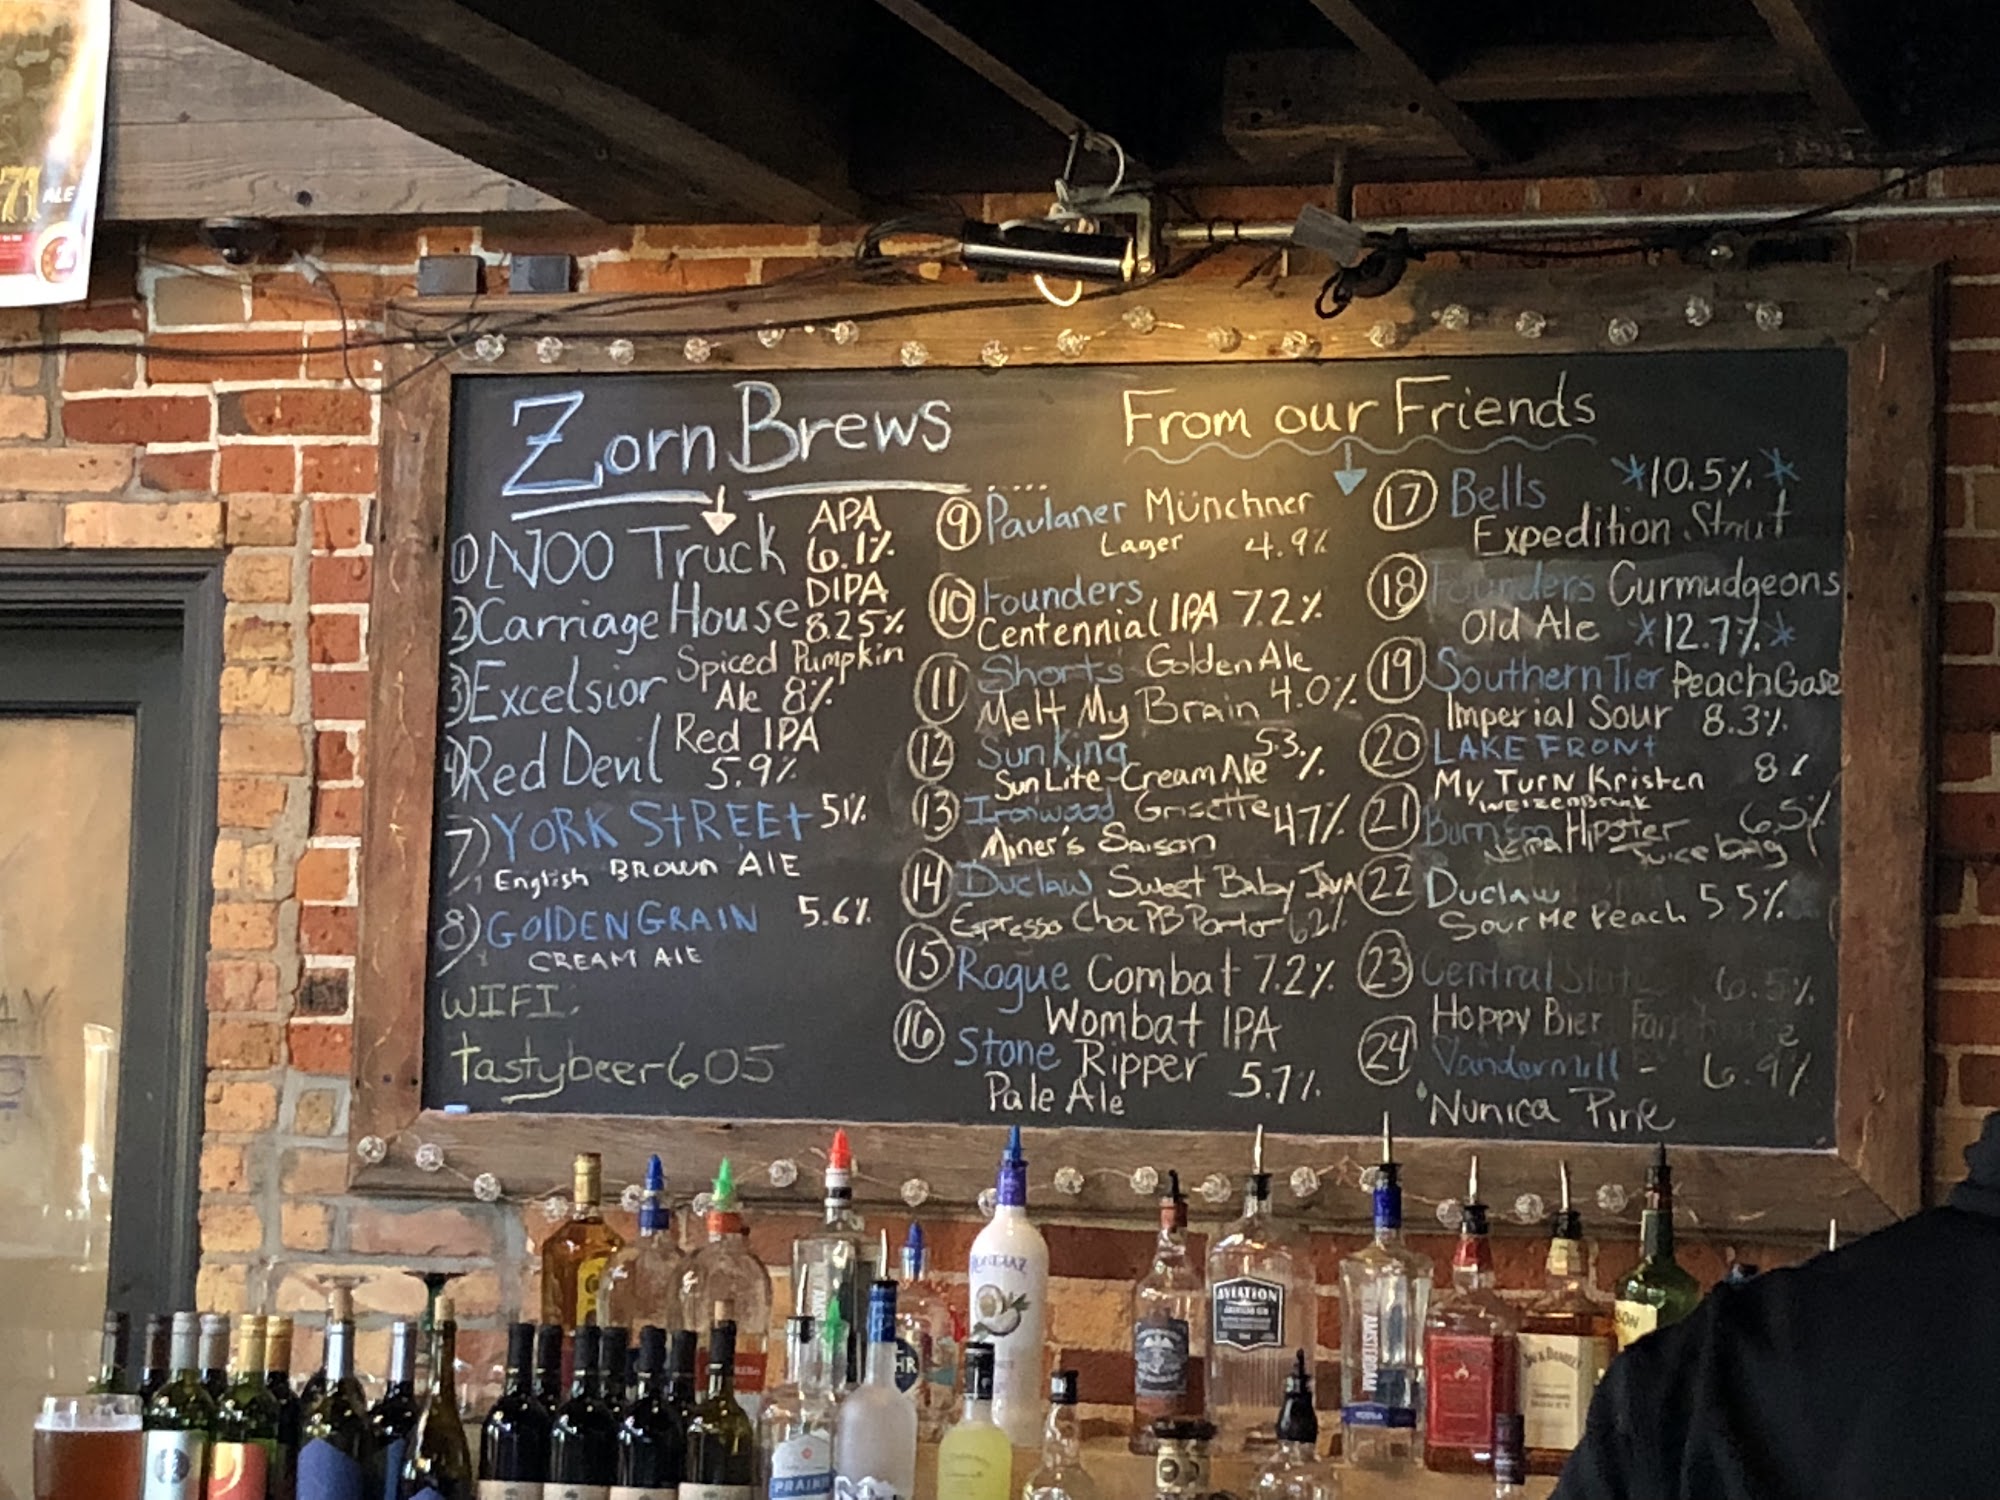 71 ALE
Zorn Brews
1) NOO Truck APA 6.1%
2) Carriage House DIPA 8.25%
3) Excelsior Spiced Pumpkin
Ale 8%
4) Red Devil Red IPA
5.9%
7) YORK STREET 51%
English BROWN ALE
8) GOLDEN GRAIN 5.6%
CREAM ALE
WIFI:
tastybeer605
From our Friends
9 Paulaner Münchner
Lager 4.9%
10 Founders
Centennial IPA 7.2%
11 Shorts Golden Ale
Melt My Brain 4.0%
12 Sun King 5.3%
Sun Lite Cream Ale
13 Ironwood Grisette 47%
Miner's Saison
14 Duclaw Sweet Baby Java
Espresso Choc PB Porter 62%
15 Rogue Combat 7.2%
Wombat IPA
16 Stone Ripper
Pale Ale 5.7%
17 Bells *10.5%*
Expedition Stout
18 Founders Curmudgeons
Old Ale *12.7%*
19 Southern Tier Peach Gose
Imperial Sour 8.3%
20 LAKE FRONT
My Turn Kristen 8%
WEIZENBOCK
21 Burn Em Hipster 6.5%
NEIPA Juice
22 Duclaw 5.5%
Sour Me Peach
23 Central State 6.5%
Hoppy Bier Farmhouse
24 Vandermill - 6.9%
Nunica Pine
AVIATION
AMERICAN GIN
JACK DANIEL'S
PRAIRIE